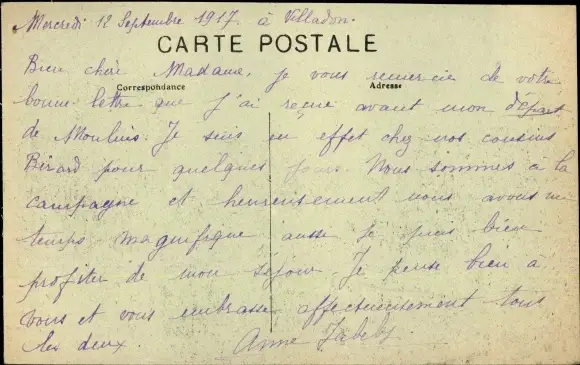 Mercredi 12 Septembre 1917 à Villadon.
CARTE POSTALE
Bien chère Madame, je vous remercie de votre
Correspondance
Adresse
bonne lettre que j'ai reçue avant mon départ
de Moulins. Je suis en effet chez nos cousins
Bérard pour quelques jours. Nous sommes à la
campagne et heureusement nous avons un
temps magnifique aussi je puis bien
profiter de mon séjour. Je pense bien à
vous et vous embrasse affectueusement tous
les deux.
Anne